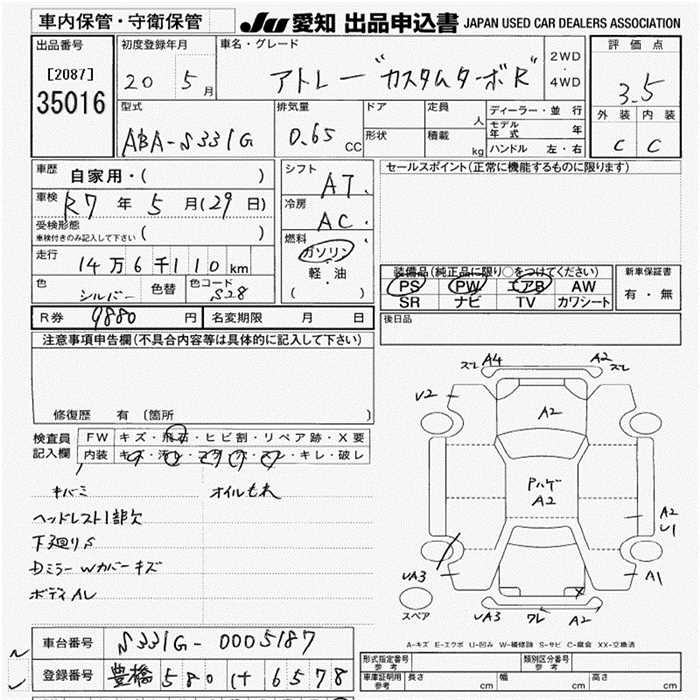 車内保管・守衛保管 JU 愛知 出品申込書 JAPAN USED CAR DEALERS ASSOCIATION
出品番号 [2087] 35016
初度登録年月 20 5月
車名・グレード アトレー "カスタムターボR"
2WD・4WD
評価点 3.5
外装 内装
C C
型式 ABA-S331G
排気量 0.65 CC
ドア 定員 人
形状 積載 kg
ディーラー・並行
モデル年式 年
ハンドル 左・右
車歴 自家用・( )
車検 R7年 5月(29日)
受検形態 ( )
車検付きのみ記入して下さい
走行 14万6千110km
色 シルバー 色替 色コード S28
シフト AT.
冷房 AC.
燃料 ガソリン・軽・油
( )
セールスポイント(正常に機能するものに限ります)
装備品(純正品に限り○をつけてください)
PS PW エアB AW
SR ナビ TV カワシート
新車保証書
有・無
R券 9880円 名変期限 月 日
後日品
注意事項申告欄(不具合内容等は具体的に記入して下さい)
修復歴 有 〔箇所 〕
検査員記入欄
FW キズ・飛石・ヒビ割・リペア跡・X要
内装 キズ・汚レ・コゲ・穴・スレ・キレ・破レ
キバミ オイルもれ
ヘッドレスト1部欠
下廻りS
DミラーWカバーキズ
ボディAL
スレ A4 A2 スレ
U2
A2
Pハゲ
A2
A2
U1
UA3
A1
X
スペア
UA3 ワレ A2
A-キズ E-エクボ U-凹み W-補修跡 S-サビ C-腐食 XX-交換済
車台番号 S331G-0005187
登録番号 豊橋 580 け 6578
形式指定番号 参考 類別区分番号 参考
車庫証明用 参考 長さ cm 幅 cm 高さ cm